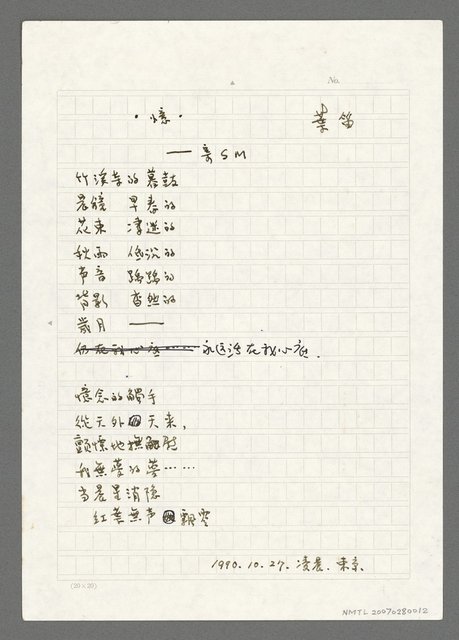 No.
·憶·
葉笛
——寄SM
竹溪寺的暮鼓
晨鐘 早春的
花束 淒迷的
秋雨 低沉的
声音 踽踽的
背影 杳然的
歲月——
仍在我心底……永遠活在我心底.
憶念的觸手
從天外 天来,
顫慄地撫慰
我無夢的夢……
当晨星消隐
紅葉無声 飄零
1990.10.27.凌晨.東京.
(20×20)
NMTL 20070280012